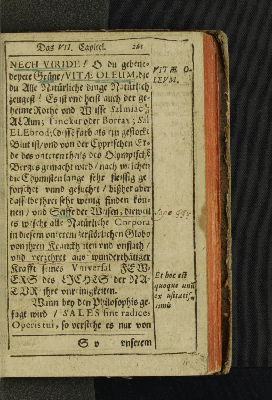 Das VII. Capitel. 261
NECH VIRIDE! O du gebene-
deyete Grüne/VITÆ OLEUM, die
du Alle Natürliche dinge Natürlich
zeugest! Es ist und heist auch der ge-
heime Rothe und Weisse Salmiac;
AlAun; Tinckar oder Borras; Sal
ELEbrod; dessen farb als ein gestockt
Blut ist/ und von der Cyprischen Er-
de des untern theils des Olympischen
Berges gemacht wird/ nach welchem
die Chymisten lange sehr fleissig ge
forschet unnd gesucht / bißher aber
dasselbe ihrer sehr wenig finden kön-
nen / und Seiffe der Weisen, dieweil
es wescht alle Natürliche Corpora
in diesem unterm zerstörlichen Globo
von ihren Kranckheiten und unflath /
und verzehret aus wunderthätiger
Krafft seines Universal FEW-
ERS des LICHTS der NA-
TUR ihre unreinigkeiten.
Wann bey den Philosophis ge-
sagt wird / SALES sint radices
Operis tui, so verstehe es nur von
S v unserem
VITÆ O-
LEUM.
Et hoc est
quoque unũ
ex usitatis-
simis